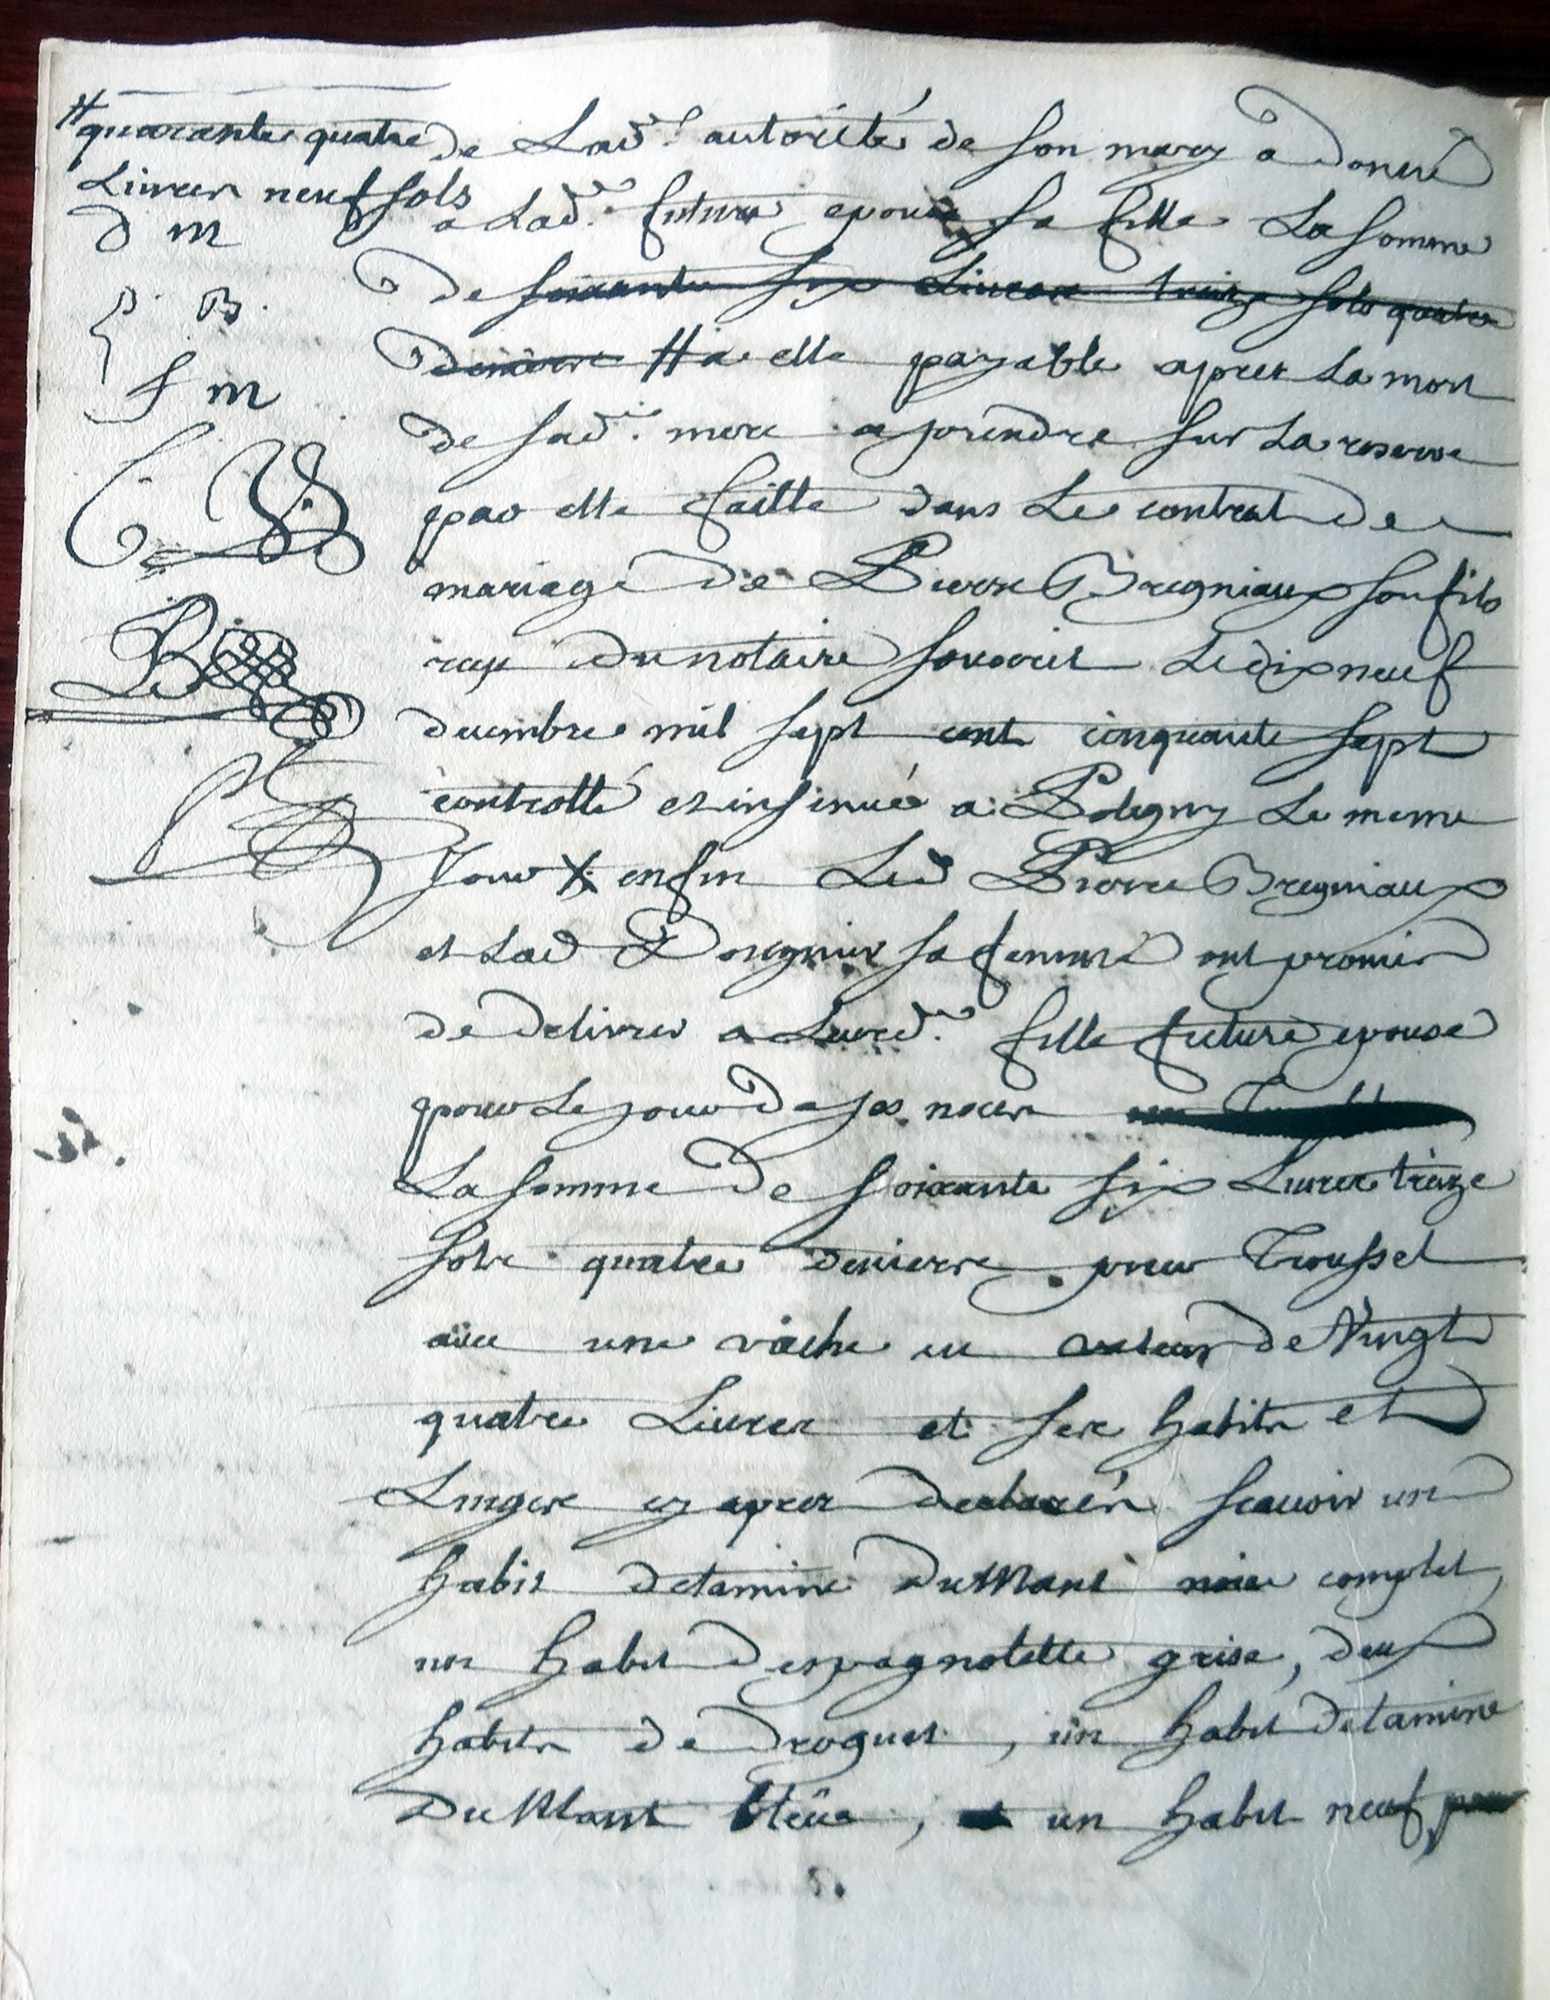 # quarante quatre
Livres neuf sols
D m
P. B.
f m
de Lad.e autorité de son mary a donné
a Lad.e future epouse sa fille La somme
de soixante six Livres treize sols quatre
deniers # a elle payable apres La mort
de sad.e mere a prendre sur La reserve
par elle faitte dans Le contrat de
mariage de Pierre Bregniaux son fils
reçu du notaire sousorit Le dix neuf
decembre mil sept cent cinquante sept
controllé et insinué a Poligny Le meme
Jour X enfin Led Pierre Bregniaux
et Lad sa femme ont promis
de delivrer a Leured.e fille future epouse
pour Le jour de ses noces un
La somme de soixante six Livres treize
sols quatre deniers pour Troussel
avec une vache en valeur de Vingt
quatre Livres et ses habits et
Linges cy apres declarés scauoir un
habit detamine du Mans noire complet,
un habit despagnolette grise, deux
habits de Droguet, un habit detamine
Du Mans bleüe, et un habit neuf pour